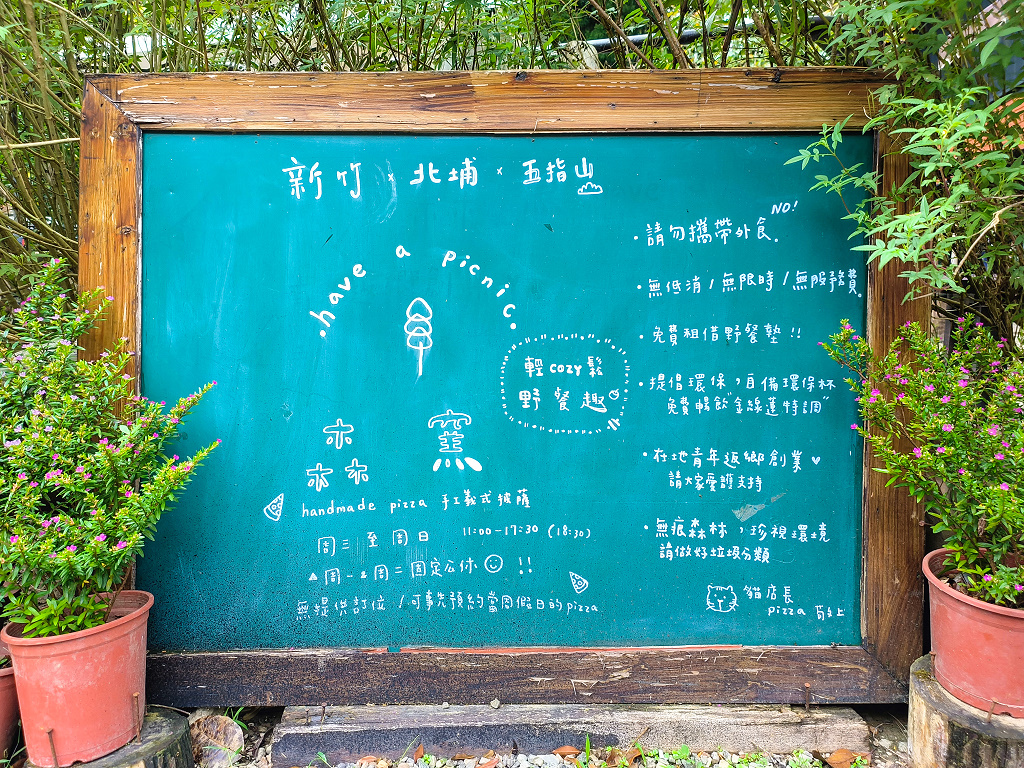 新竹 × 北埔 × 五指山
.have a picnic.
輕cozy鬆
野餐趣
森窯
handmade pizza 手工義式披薩
周三 至 周日 11:00-17:30 (18:30)
▲周一&周二固定公休☺ !!
無提供訂位 / 可事先預約當周假日的pizza
NO!
·請勿攜帶外食.
·無低消/無限時/無服務費.
·免費租借野餐墊 !!
·提倡環保,自備環保杯
免費暢飲"金線蓮特調"
·在地青年返鄉創業♥
請大家愛護支持
·無痕森林,珍視環境
請做好垃圾分類
貓店長
pizza 敬上